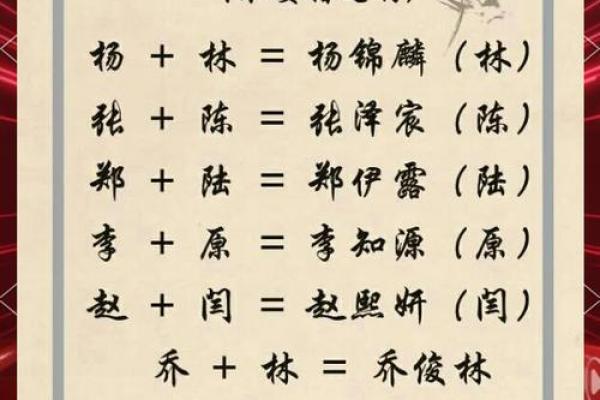 杨 + 林 = 杨锦麟（林）
张 + 陈 = 张泽宸（陈）
郑 + 陆 = 郑伊露（陆）
李 + 原 = 李知源（原）
赵 + 闫 = 赵熙妍（闫）
乔 + 林 = 乔俊林